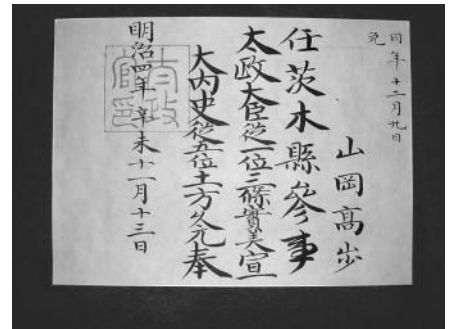 同年十二月九日
免
山岡高歩
任茨木縣參事
太政大臣從一位三條實美宣
大内史從五位土方久元奉
明治四年辛未十一月十三日
太政官印